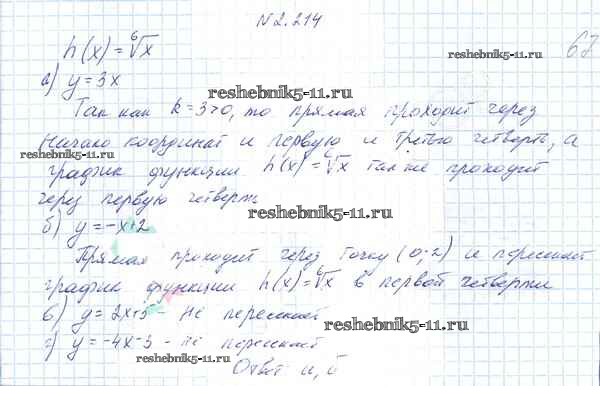 № 2.214
h(x) = ⁶√x
67
а) y = 3x
reshebnik5-11.ru
Так как k = 3 > 0, то прямая проходит через
начало координат и первую и третью четверть, а
reshebnik5-11.ru
график функции h(x) = ⁶√x также проходит
через первую четверть
reshebnik5-11.ru
б) y = -x+2
Прямая проходит через точку (0;2) и пересекает
график функции h(x) = ⁶√x в первой четверти
в) y = 2x+5 - не пересекает
reshebnik5-11.ru
г) y = -4x-3 - не пересекает
reshebnik5-11.ru
Ответ: а, б